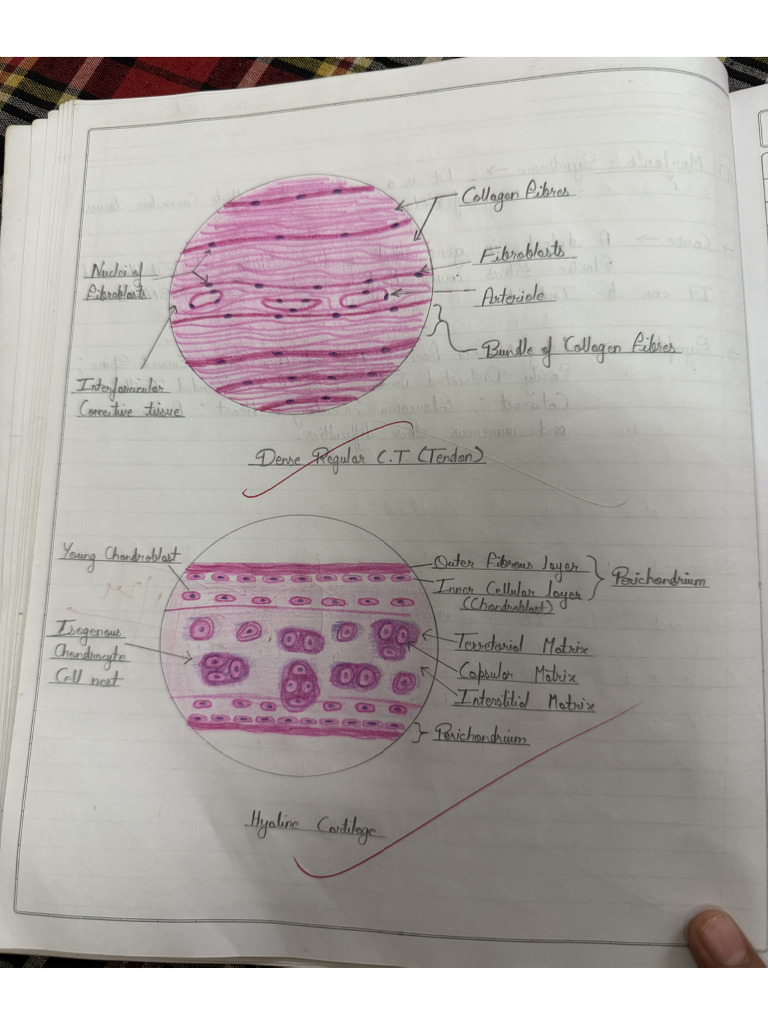 Collagen Fibres
Fibroblasts
Nuclei of
Fibroblasts
Arteriole
Bundle of Collagen Fibres
Interfasicular
Connective tissue
Dense Regular C.T. (Tendon)
Young Chondroblast
Outer Fibrous layer
Inner Cellular layer
(Chondroblast)
Perichondrium
Isogenous
Chondrocyte
Cell nest
Terretorial Matrix
Capsular Matrix
Interstitial Matrix
Perichondrium
Hyaline Cartilage